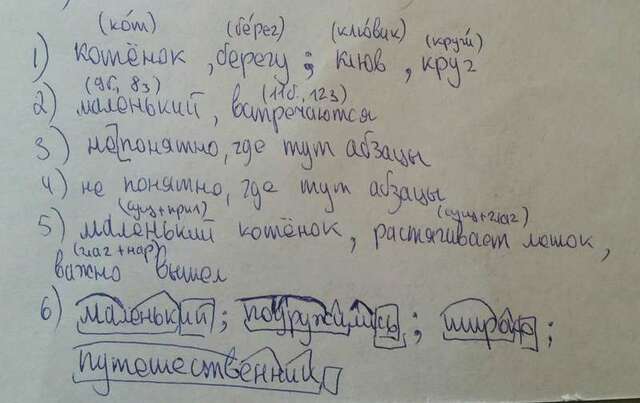 (ко́т) (бе́рег) (клю́вик) (круги́)
1) котёнок, берегу; клюв, круг
(9б, 8з) (11б., 12з)
2) маленький, встречаются
3) непонятно, где тут абзацы
4) не понятно, где тут абзацы
(сущ+прил) (сущ+глаг)
5) маленький котёнок, растягивает мешок,
(глаг+нар)
важно вышел
6) маленький; подружились; жираф;
путешественник